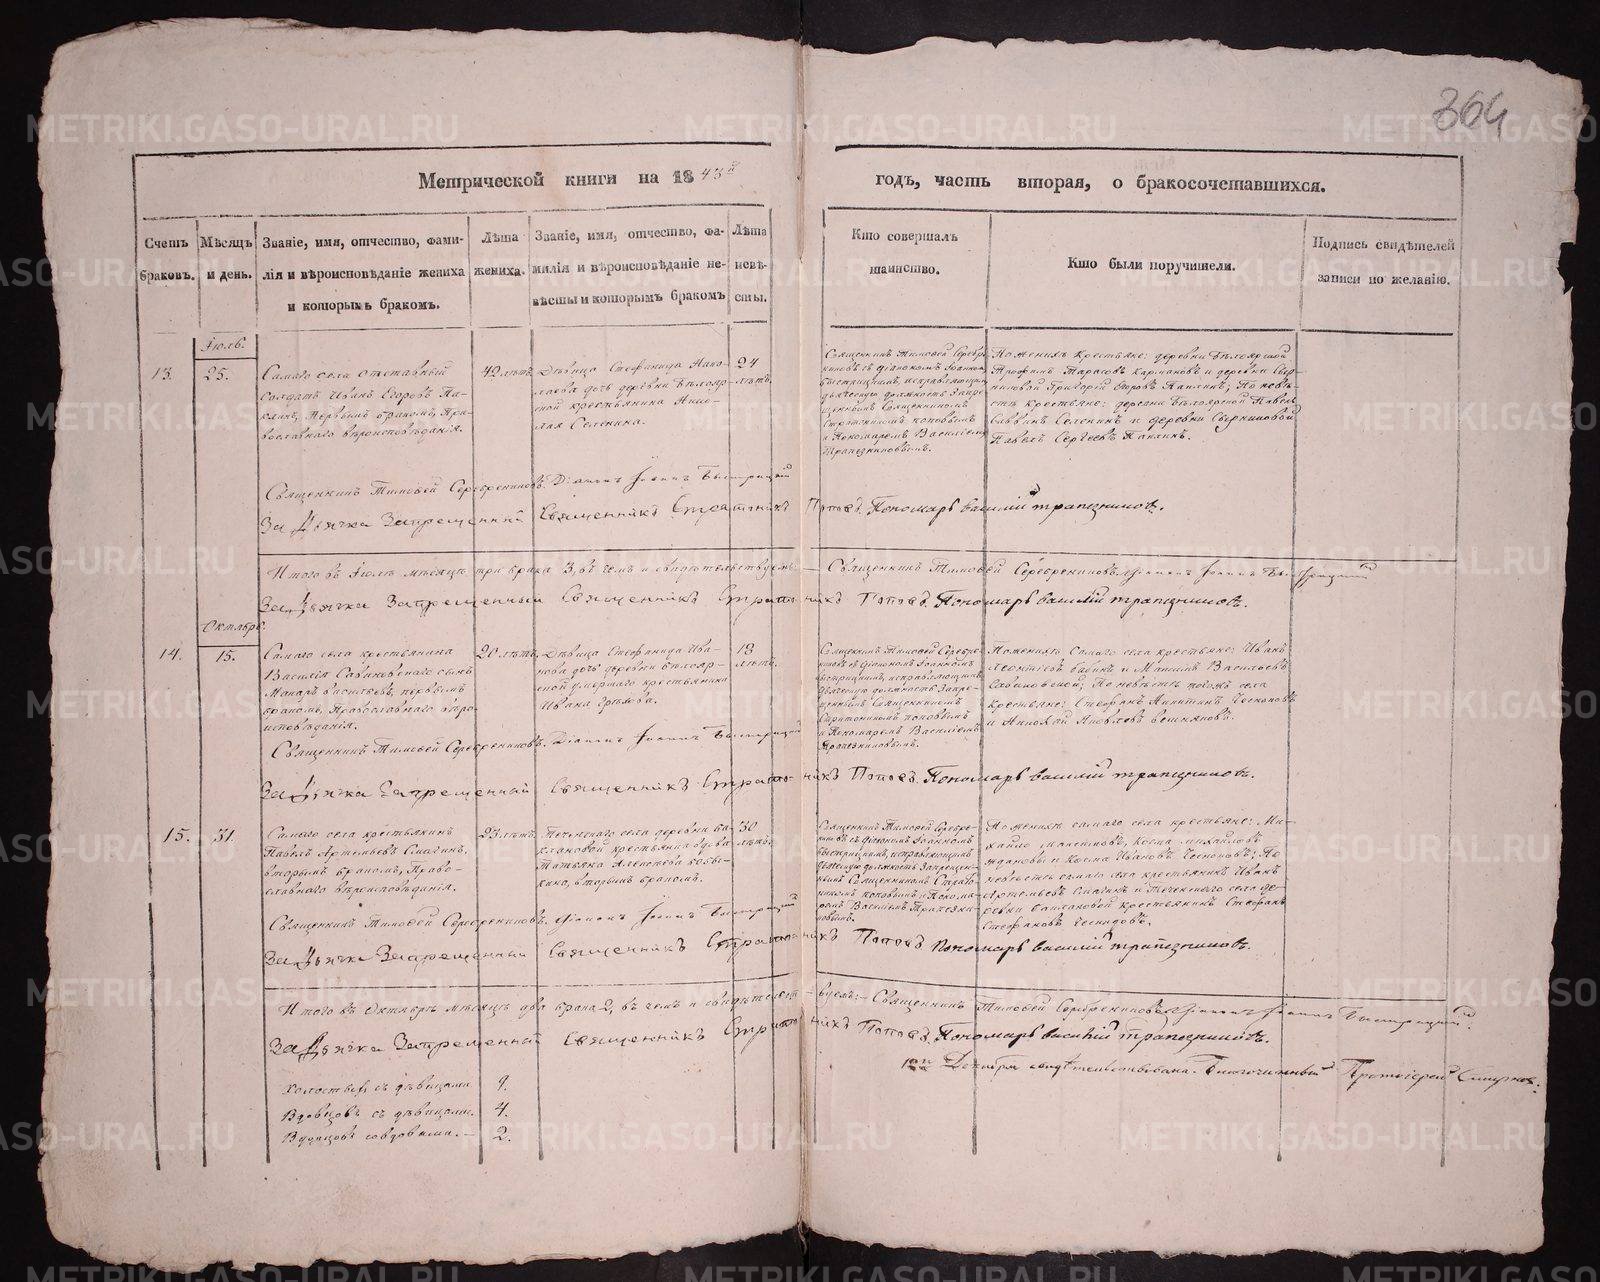 364
Метрической книги на 1843й годъ, часть вторая, о бракосочетавшихся.
Счетъ браковъ.
Мѣсяцъ и день.
Званіе, имя, отчество, фами-
лія и вѣроисповѣданіе жениха
и которымъ бракомъ.
Лѣта
жениха.
Званіе, имя, отчество, фа-
милія и вѣроисповѣданіе не-
вѣсты и которымъ бракомъ
Лѣта
невѣ-
сты.
Кто совершалъ
таинство.
Кто были поручители.
Подпись свидѣтелей
записи по желанію.
Іюль.
13.
25.
Самаго села отставный
солдатъ Иванъ Егоровъ Па-
клинъ, первымъ бракомъ, Пра-
вославнаго вѣроисповѣданія.
42 лѣтъ.
Дѣвица Стефанида Нико-
лаева дочь деревни Бѣлояр-
ской крестьянина Нико-
лая Селенина.
24
лѣтъ.
Священникъ Тимофей Серебре-
никовъ съ діакономъ Іоанномъ
Быстрицкимъ, исправляющимъ
дьяческую должность Запре-
щеннымъ Священникомъ
Стратоникомъ Поповымъ
и Пономаремъ Василіемъ
Трапезниковымъ.
По женихѣ крестьяне: деревни Бѣлоярской
Трофимъ Тарасовъ Кармановъ и деревни
Григорій Егоровъ Паклинъ; По невѣ-
стѣ крестьяне: деревни Бѣлоярской Павелъ
Саввинъ Селенинъ и деревни
Павелъ Сергеевъ Паклинъ.
Священникъ Тимофей Серебрениковъ. Діаконъ Іоаннъ Быстрицкій
За Дьячка Запрещенный Священникъ Стратоникъ Поповъ. Пономарь василий трапезниковъ.
Итого въ Іюлѣ мѣсяцѣ три брака 3, въ чемъ и свидѣтельствуемъ: Священникъ Тимофей Серебрениковъ. Діаконъ Іоаннъ Быстрицкій
За Дьячка Запрещенный Священникъ Стратоникъ Поповъ. Пономарь василий трапезниковъ.
Октябрь.
14.
15.
Самаго села крестьянина
Василія Савиновскаго сынъ
Макаръ Васильевъ, первымъ
бракомъ, Православнаго вѣро-
исповѣданія.
20 лѣтъ.
Дѣвица Стефанида Ива-
нова дочь деревни Бѣлояр-
ской умершаго крестьянина
Ивана
18
лѣтъ.
Священникъ Тимофей Серебре-
никовъ съ діакономъ Іоанномъ
Быстрицкимъ, исправляющимъ
дьяческую должность Запре-
щеннымъ Священникомъ
Стратоникомъ Поповымъ
и Пономаремъ Василіемъ
Трапезниковымъ.
По женихѣ Самаго села крестьяне: Иванъ
Леонтіевъ и Максимъ Васильевъ
Савиновской; По невѣстѣ тогожъ села
крестьяне: Стефанъ Никитинъ Чесноковъ
и Николай Яковлевъ
Священникъ Тимофей Серебрениковъ. Діаконъ Іоаннъ Быстрицкій
За Дьячка Запрещенный Священникъ Стратоникъ Поповъ. Пономарь василий трапезниковъ.
15.
31.
Самаго села крестьянинъ
Павелъ Артемьевъ Смагинъ,
вторымъ бракомъ, Право-
славнаго вѣроисповѣданія.
23 лѣтъ.
Теченскаго села деревни Ба-
клановой крестьянка вдова
Татьяна Алексѣева
вторымъ бракомъ.
30
лѣтъ.
Священникъ Тимофей Серебре-
никовъ съ діакономъ Іоанномъ
Быстрицкимъ, исправляющимъ
дьяческую должность Запрещен-
нымъ Священникомъ Страто-
никомъ Поповымъ и Понома-
ремъ Василіемъ Трапезни-
ковымъ.
По женихѣ самаго села крестьяне: Ми-
хайло Козма Михайловъ
Ждановы и Козма Ивановъ Чесноковъ; По
невѣстѣ самаго села крестьянинъ Иванъ
Артемьевъ Смагинъ и Теченскаго села де-
ревни Баклановой крестьянинъ Стефанъ
Стефановъ
Священникъ Тимофей Серебрениковъ. Діаконъ Іоаннъ Быстрицкій
За Дьячка Запрещенный Священникъ Стратоникъ Поповъ Пономарь василий трапезниковъ.
Итого въ Октябрѣ мѣсяцѣ два брака 2, въ чемъ и свидѣтельст-вуемъ: Священникъ Тимофей Серебрениковъ. Діаконъ Іоаннъ Быстрицкій.
За Дьячка Запрещенный Священникъ Стратоникъ Поповъ. Пономарь василий трапезниковъ.
Декабря свидѣтельствовалъ Благочинный Протоіерей Смирновъ.
Холостыхъ съ дѣвицами 9.
Вдовцовъ съ дѣвицами. 4.
Вдовцовъ со вдовами. — 2.
METRIKI.GASO-URAL.RU